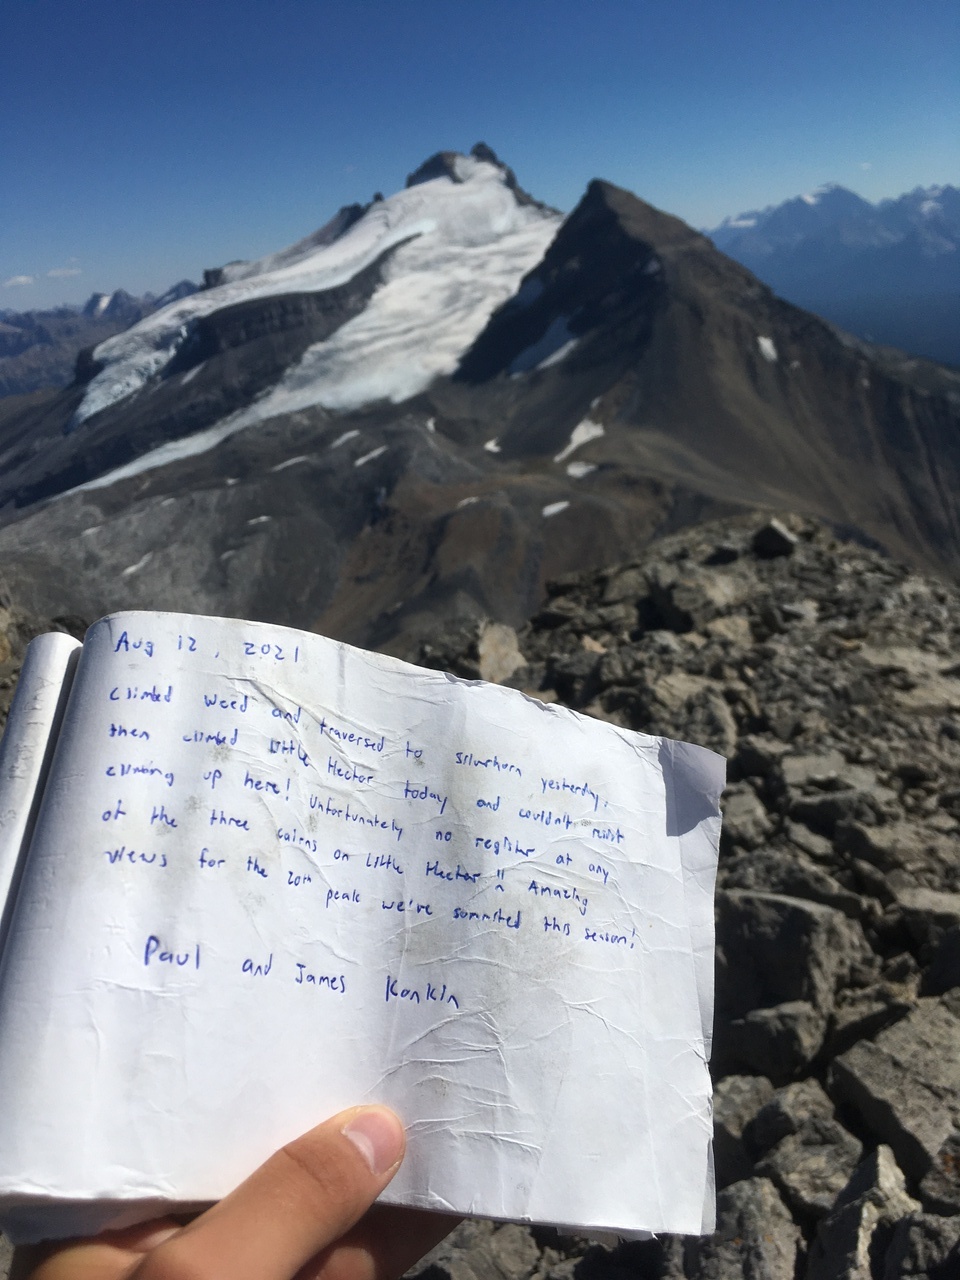 Aug 12, 2021
climbed Weed and traversed to Silverhorn yesterday,
then climbed Little Hector today and couldn't resist
climbing up here! Unfortunately no register at any
of the three cairns on Little Hector !! Amazing
views for the 20th peak we've summited this season!
Paul and James Konkin